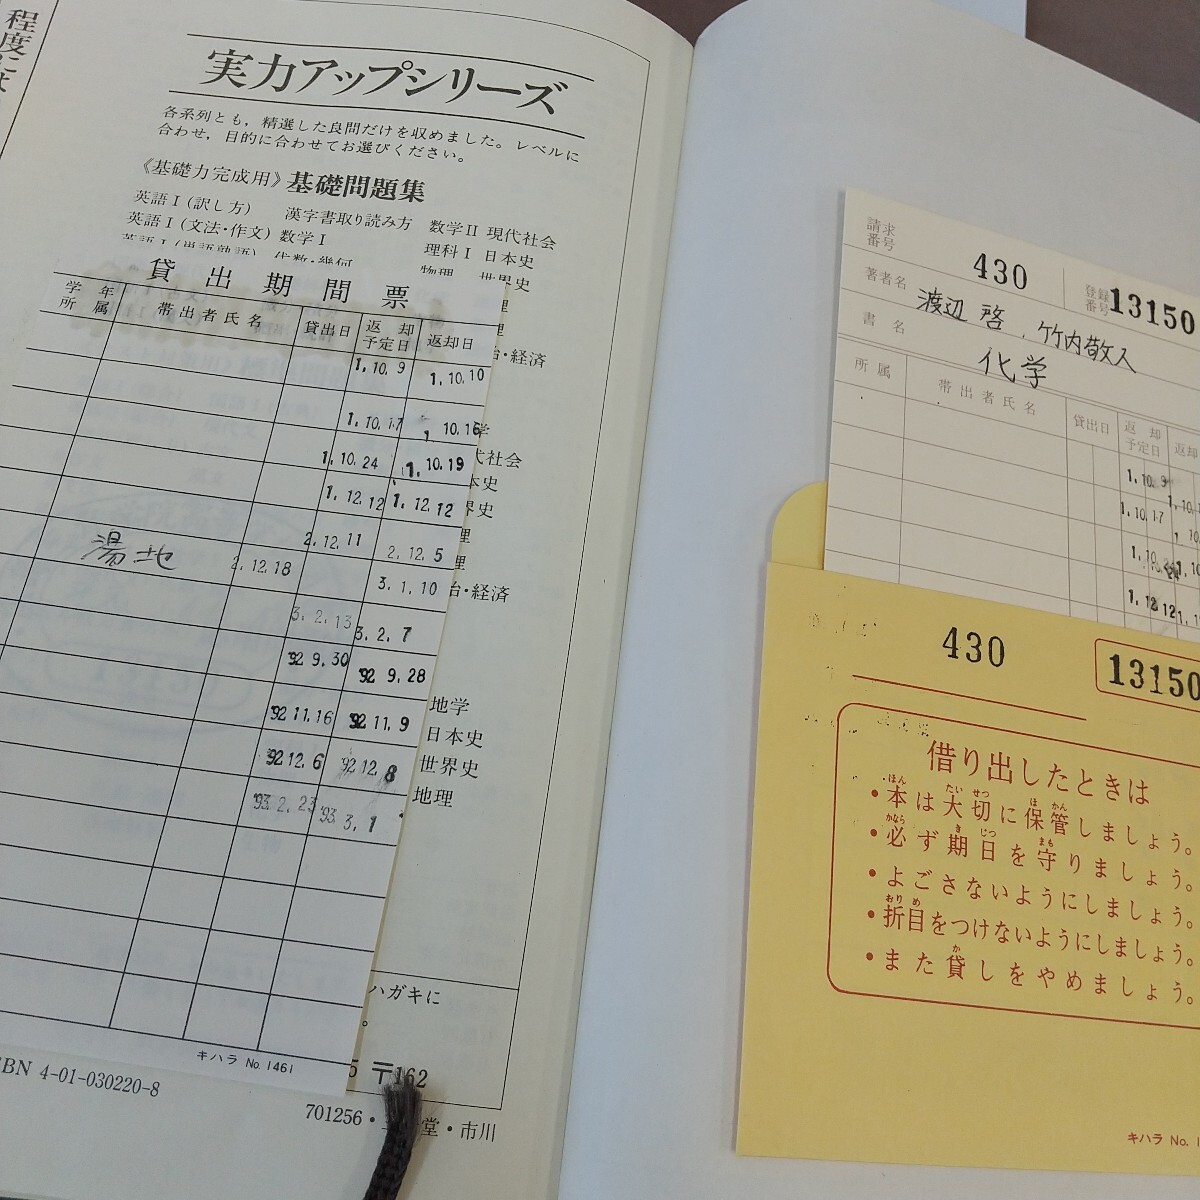 程度には
実力アップシリーズ
各系列とも，精選した良問だけを収めました。レベルに
合わせ，目的に合わせてお選びください。
《基礎力完成用》基礎問題集
英語Ⅰ(訳し方) 漢字書取り読み方 数学Ⅱ 現代社会
英語Ⅰ(文法・作文) 数学Ⅰ 理科Ⅰ 日本史
英語Ⅰ(単語熟語) 代数・幾何 物理 世界史
理
治・経済
学
代社会
本史
界史
理
理
治・経済
地学
日本史
世界史
地理
ハガキに
〒162
BN 4-01-030220-8
701256・
堂・市川
貸出期間票
学年
所属
帯出者氏名
貸出日
返却
予定日
返却日
1.10.9 1.10.10
1.10.17 1.10.16
1.10.24 1.10.19
1.12.12 1.12.12
2.12.11 2.12.5
湯地 2.12.18 3.1.10
3.2.13 3.2.7
'92 9.30 '92 9.28
'92 11.16 '92 11.9
'92 12.6 '92 12.8
'93.2.23 '93.3.1
キハラ No.1461
請求
番号
430
登録
番号
13150
著者名 渡辺 啓、竹内敬人
書名 化学
所属
帯出者氏名
貸出日
返却
予定日
返却
1.10.9
1.10.17
1.12.12
430
13150
借り出したときは
・本は大切に保管しましょう。
・必ず期日を守りましょう。
・よごさないようにしましょう。
・折目をつけないようにしましょう。
・また貸しをやめましょう。
キハラ No.1